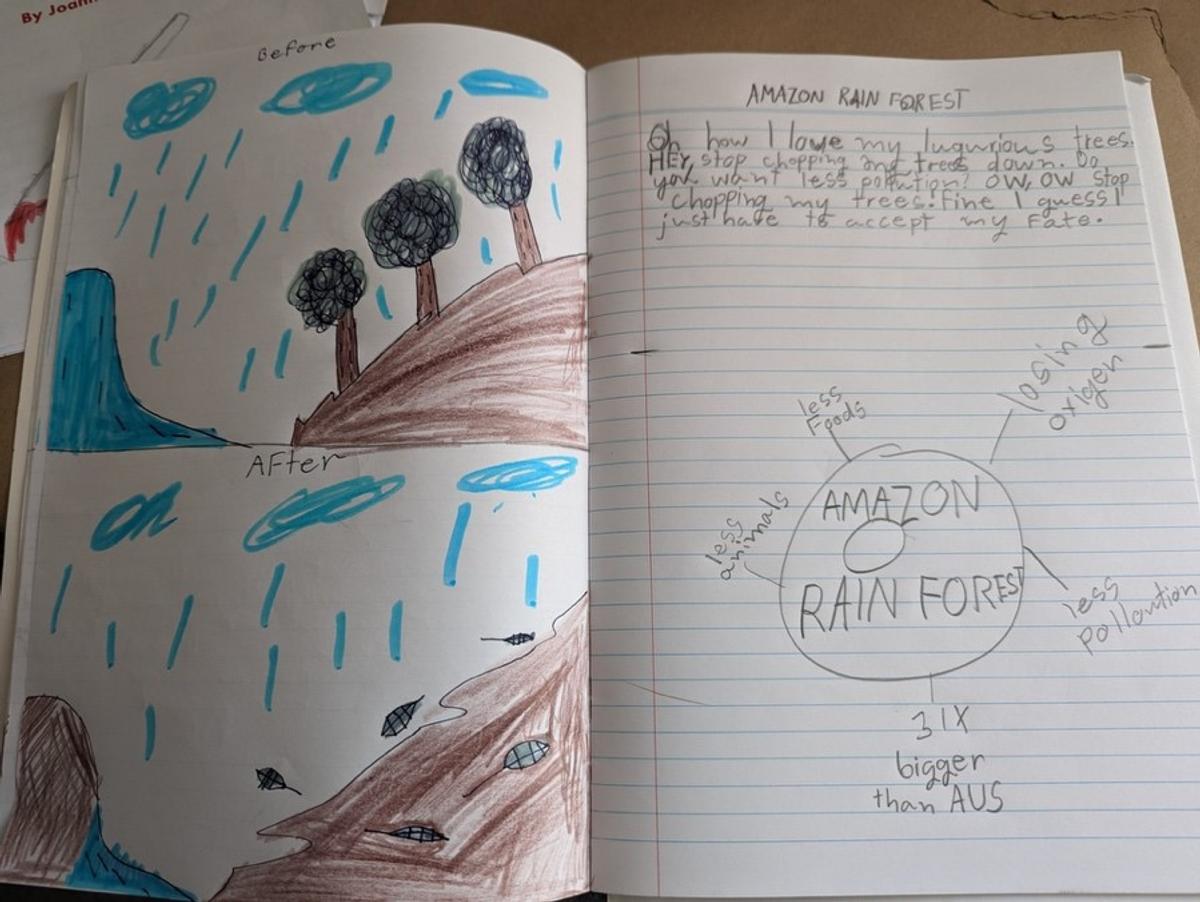 By Joann
Before
AFter
AMAZON RAIN FOREST
Oh how I love my luqurious trees.
HEy, stop chopping and trees down. Do
you want less pollution? OW, OW stop
chopping my trees. Fine I guess I
just have to accept my Fate.
losing
oxigen
less
Foods
less
animals
AMAZON
RAIN FOREST
less
pollowtion
31X
bigger
than AUS